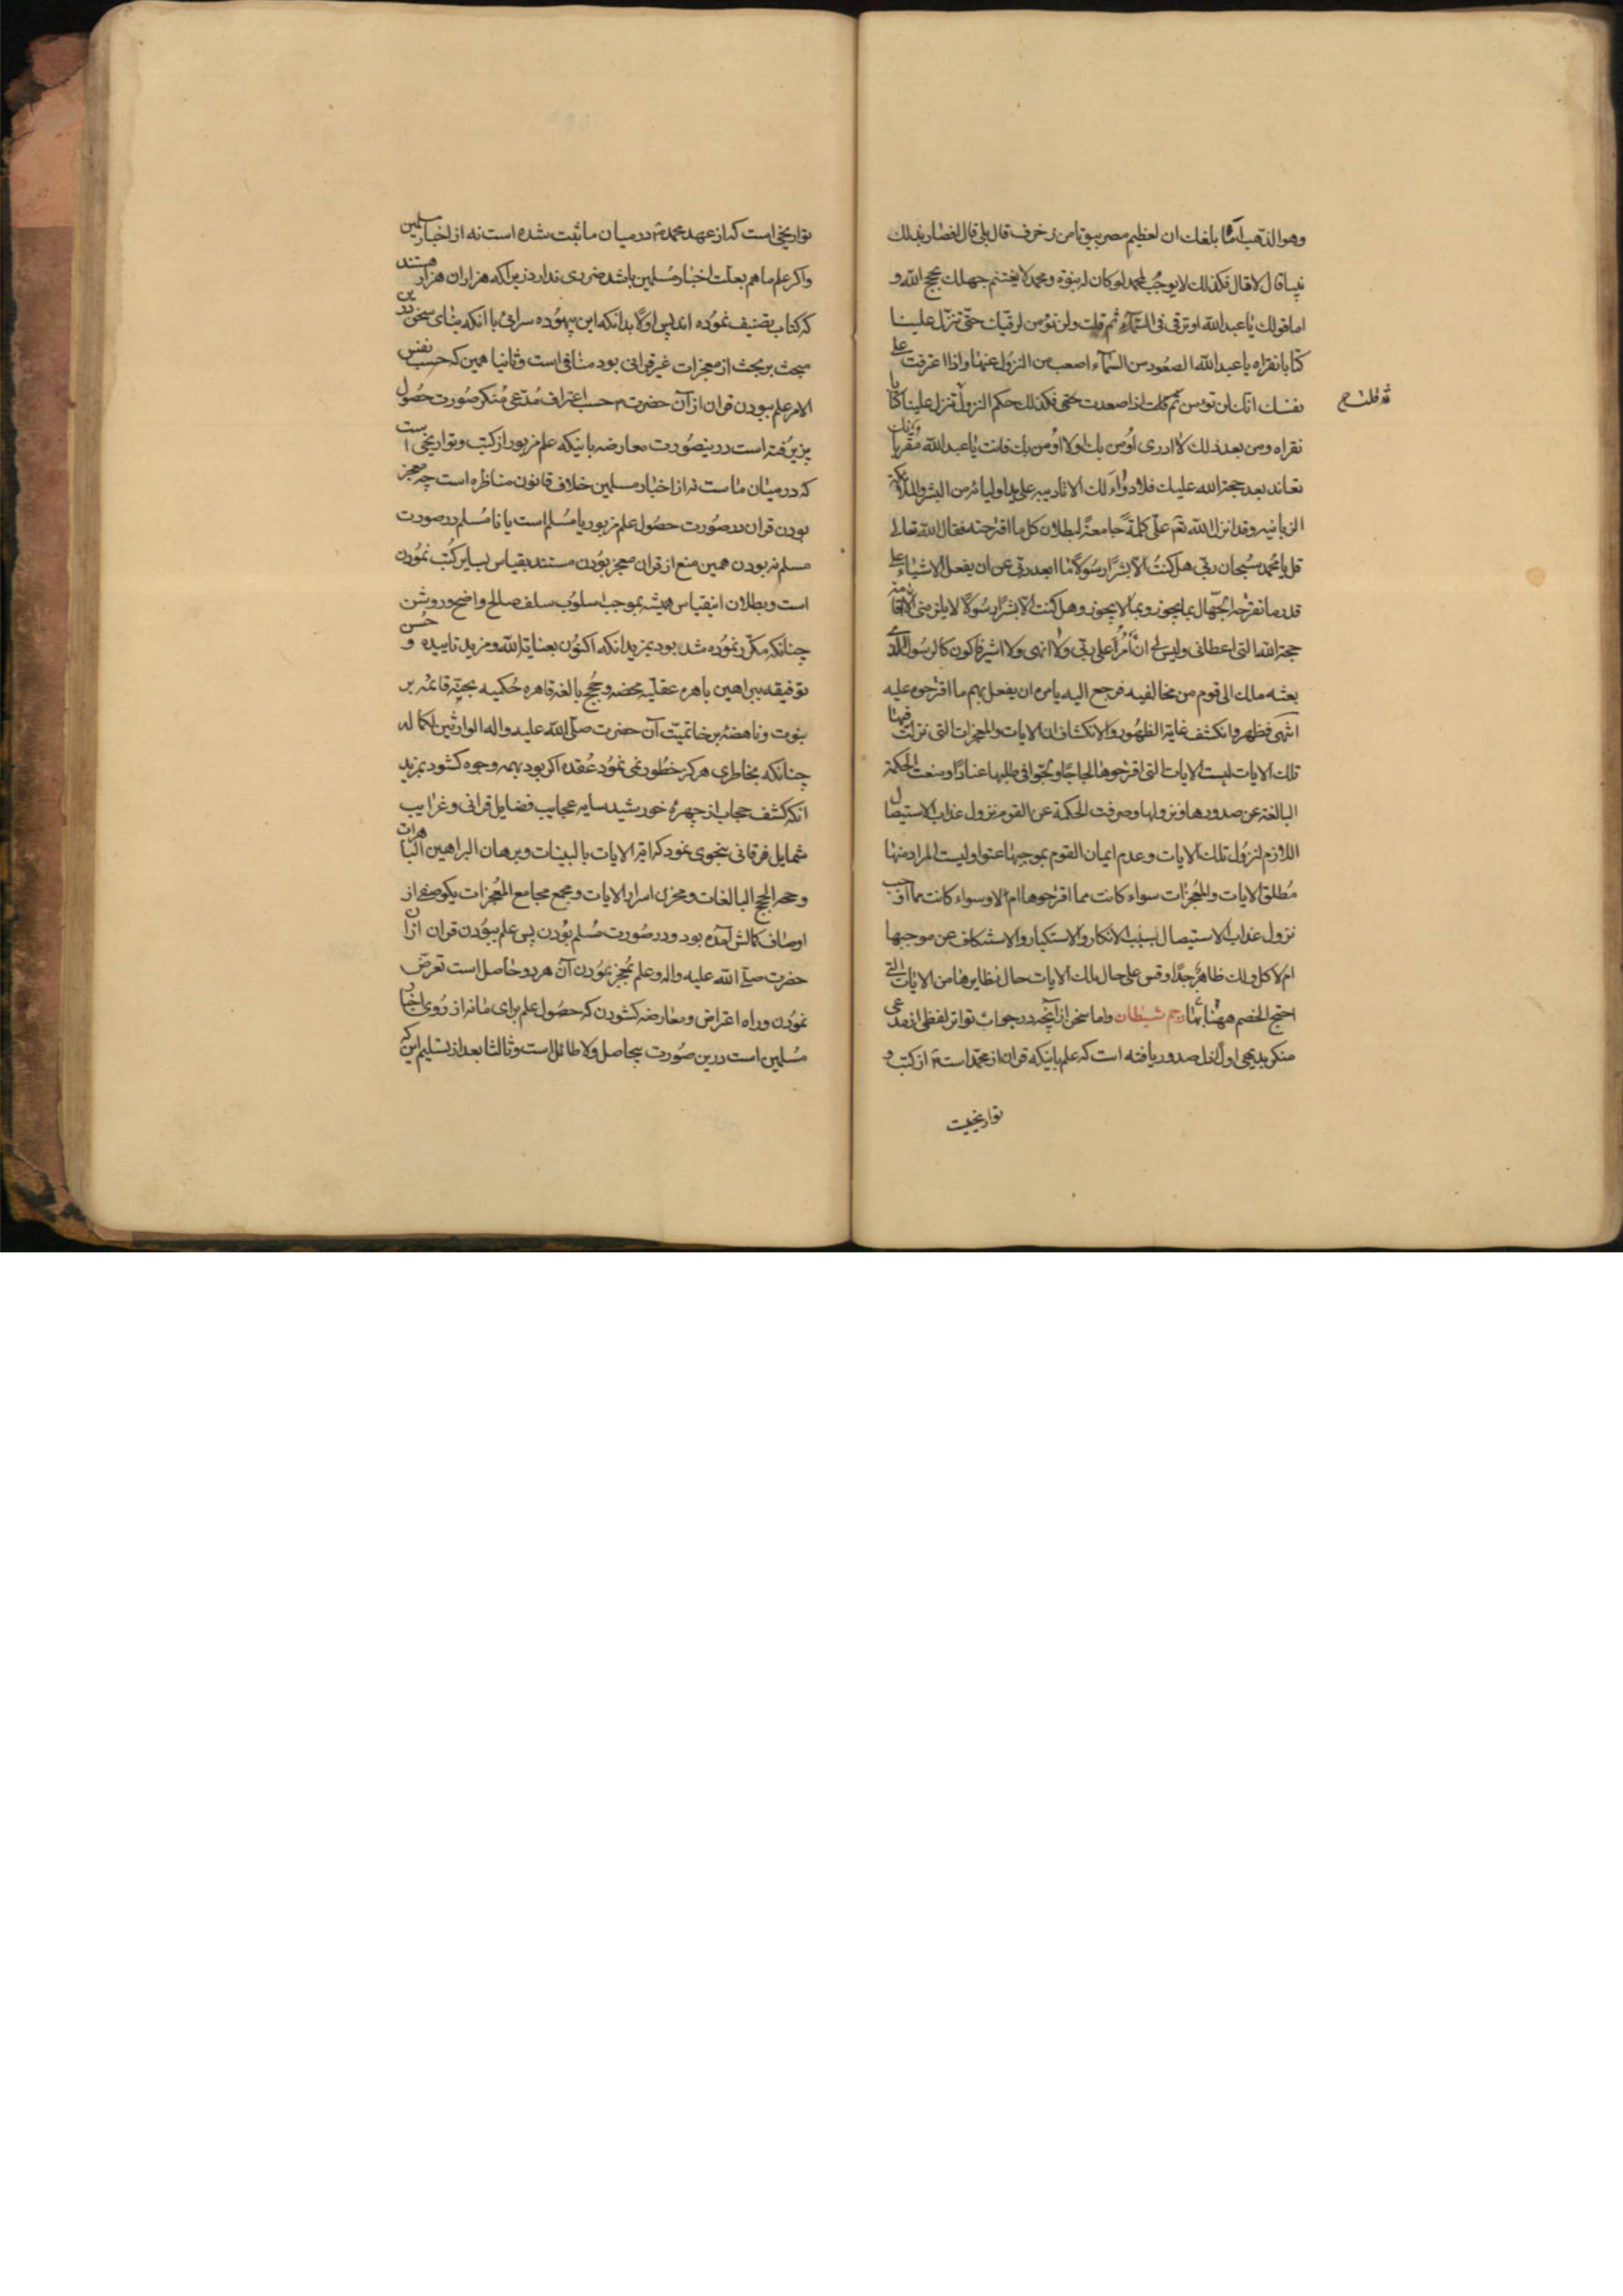 وهو الذهب اما بلغك ان لعظيم مصر بيوتا من زخرف قال بلى قال افصار بذلك
نبيا قال لا قال فكذلك لا يوجب لمحمد لو كان له نبوة ومحمد لا يغتنم جهلك بحجج الله و
اما قولك يا عبد الله او ترقى فى السماء ثم قلت ولن نؤمن لرقيك حتى تنزل علينا
كتابا نقراه يا عبد الله الصعود من السماء اصعب من النزول عنها واذا اعترفت على
نفسك انك لن تؤمن ثم قلت اذا صعدت حتى فكذلك حكم النزول تنزل علينا كتابا
نقراه ومن بعد ذلك لا ادرى اؤمن بك او لا اؤمن بك فانت يا عبد الله مقر بانك
تعاند بعد حجة الله عليك فلا دواء لك الا تاديبه على يد اوليائه من البشر والملائكة
الزبانيه وقد انزل الله تع على كلمة جامعة لبطلان كل ما اقترحته فقال الله تعالى
قل يا محمد سبحان ربى هل كنت الا بشرا رسولا ما ابعد ربى عن ان يفعل الاشياء على
قدر ما تقترحه الجهال بما يجوز وبما لا يجوز وهل كنت الا بشرا رسولا لا يلزمنى الا اقامة
حجة الله التى اعطانى وليس لى ان آمر على ربى ولا انهى ولا اشير فاكون كالرسول الذى
بعثه ملك الى قوم من مخالفيه فرجع اليه يامره ان يفعل بهم ما اقترحوه عليه
انتهى فظهر وانكشف غاية الظهور والانكشاف ان الايات والمعجزات التى نزلت فيها
تلك الايات ليست الايات التى اقترحوها لجاجا ولجوا فى طلبها عنادا ومنعت الحكمة
البالغة عن صدورها ونزولها وصرفت الحكمة عن القوم نزول عذاب الاستيصال
اللازم لنزول تلك الايات وعدم ايمان القوم بموجبها عتوا وليست المراد منها
مطلق الايات والمعجزات سواء كانت مما اقترحوها ام لا وسواء كانت مما اوجب
نزول عذاب الاستيصال بسبب الانكار والاستكبار والاستنكاف عن موجبها
ام لا كل ذلك ظاهر جدا وقس على حال تلك الايات حال نظايرها من الايات التى
احتج الخصم ههنا بها رجم شيطان واما سخن از آنچه در جواب تواتر لفظى از مدعى
منكر بديهى اول از دل صدور يافته است كه علم باينكه قران از محمد است از كتب و
تواريخيست
تواريخى است كه از عهد محمد در ميان ما ثبت شده است نه از اخبار مسلمين
واكر علم ما هم بعلت اخبار مسلمين باشد ضررى ندارد زيرا كه هزاران هزار هستند
كه كتاب تصنيف نموده اند پس اولا بدانكه اين بيهوده سرائى با انكه بناى سخن درين
مبحث بر بحث از معجزات غير قرانى بود منافى است وثانيا همين كه حسب نفس
الامر علم ببودن قران از آن حضرت حسب اعتراف مدعى منكر صورت حصول
پزيرفته است درينصورت معارضه باينكه علم مزبور از كتب وتواريخى است
كه در ميان ماست نه از اخبار مسلمين خلاف قانون مناظره است چه معجز
بودن قران در صورت حصول علم مزبور يا مسلم است يا نا مسلم در صورت
مسلم نه بودن همين منع از قران معجز بودن مستند بقياس بساير كتب نمودن
است وبطلان اينقياس هميشه بموجب اسلوب سلف صالح واضح وروشن
چنانكه مكرر نموده شد بود بمزيد انكه اكنون بعناية الله ومزيد تاييده و حسن
توفيقه ببراهين باهره عقليه محضه وحجج بالغه قاهره حكميه بحتة قائمه بر
نبوت وناهضه بر خاتميت آن حضرت صلى الله عليه واله الوارثين لكماله
چنانكه بخاطرى هركز خطور نمى نمود عقده اكر بود بهمه وجوه كشود بمزيد
انكه كشف حجاب از چهره خورشيد سايه عجايب فضايل قرانى وغرايب
شمايل فرقانى بنحوى نمود كه اية الايات بالبينات وبرهان البراهين الباهرات
وحجر الحجج البالغات ومخزن اسرار الايات ومجمع مجامع المعجزات يكوصفى از
اوصاف كمالش آمده بود ودر صورت مسلم بودن پس علم ببودن قران از آن
حضرت صلى الله عليه واله وعلم بمعجز بودن آن هر دو حاصل است تعرض
نمودن وراه اعتراض ومعارضه كشودن كه حصول علم براى ما نه از روى اخبار
مسلمين است درين صورت بيحاصل ولا طائل است وثالثا بعد از تسليم اين كه